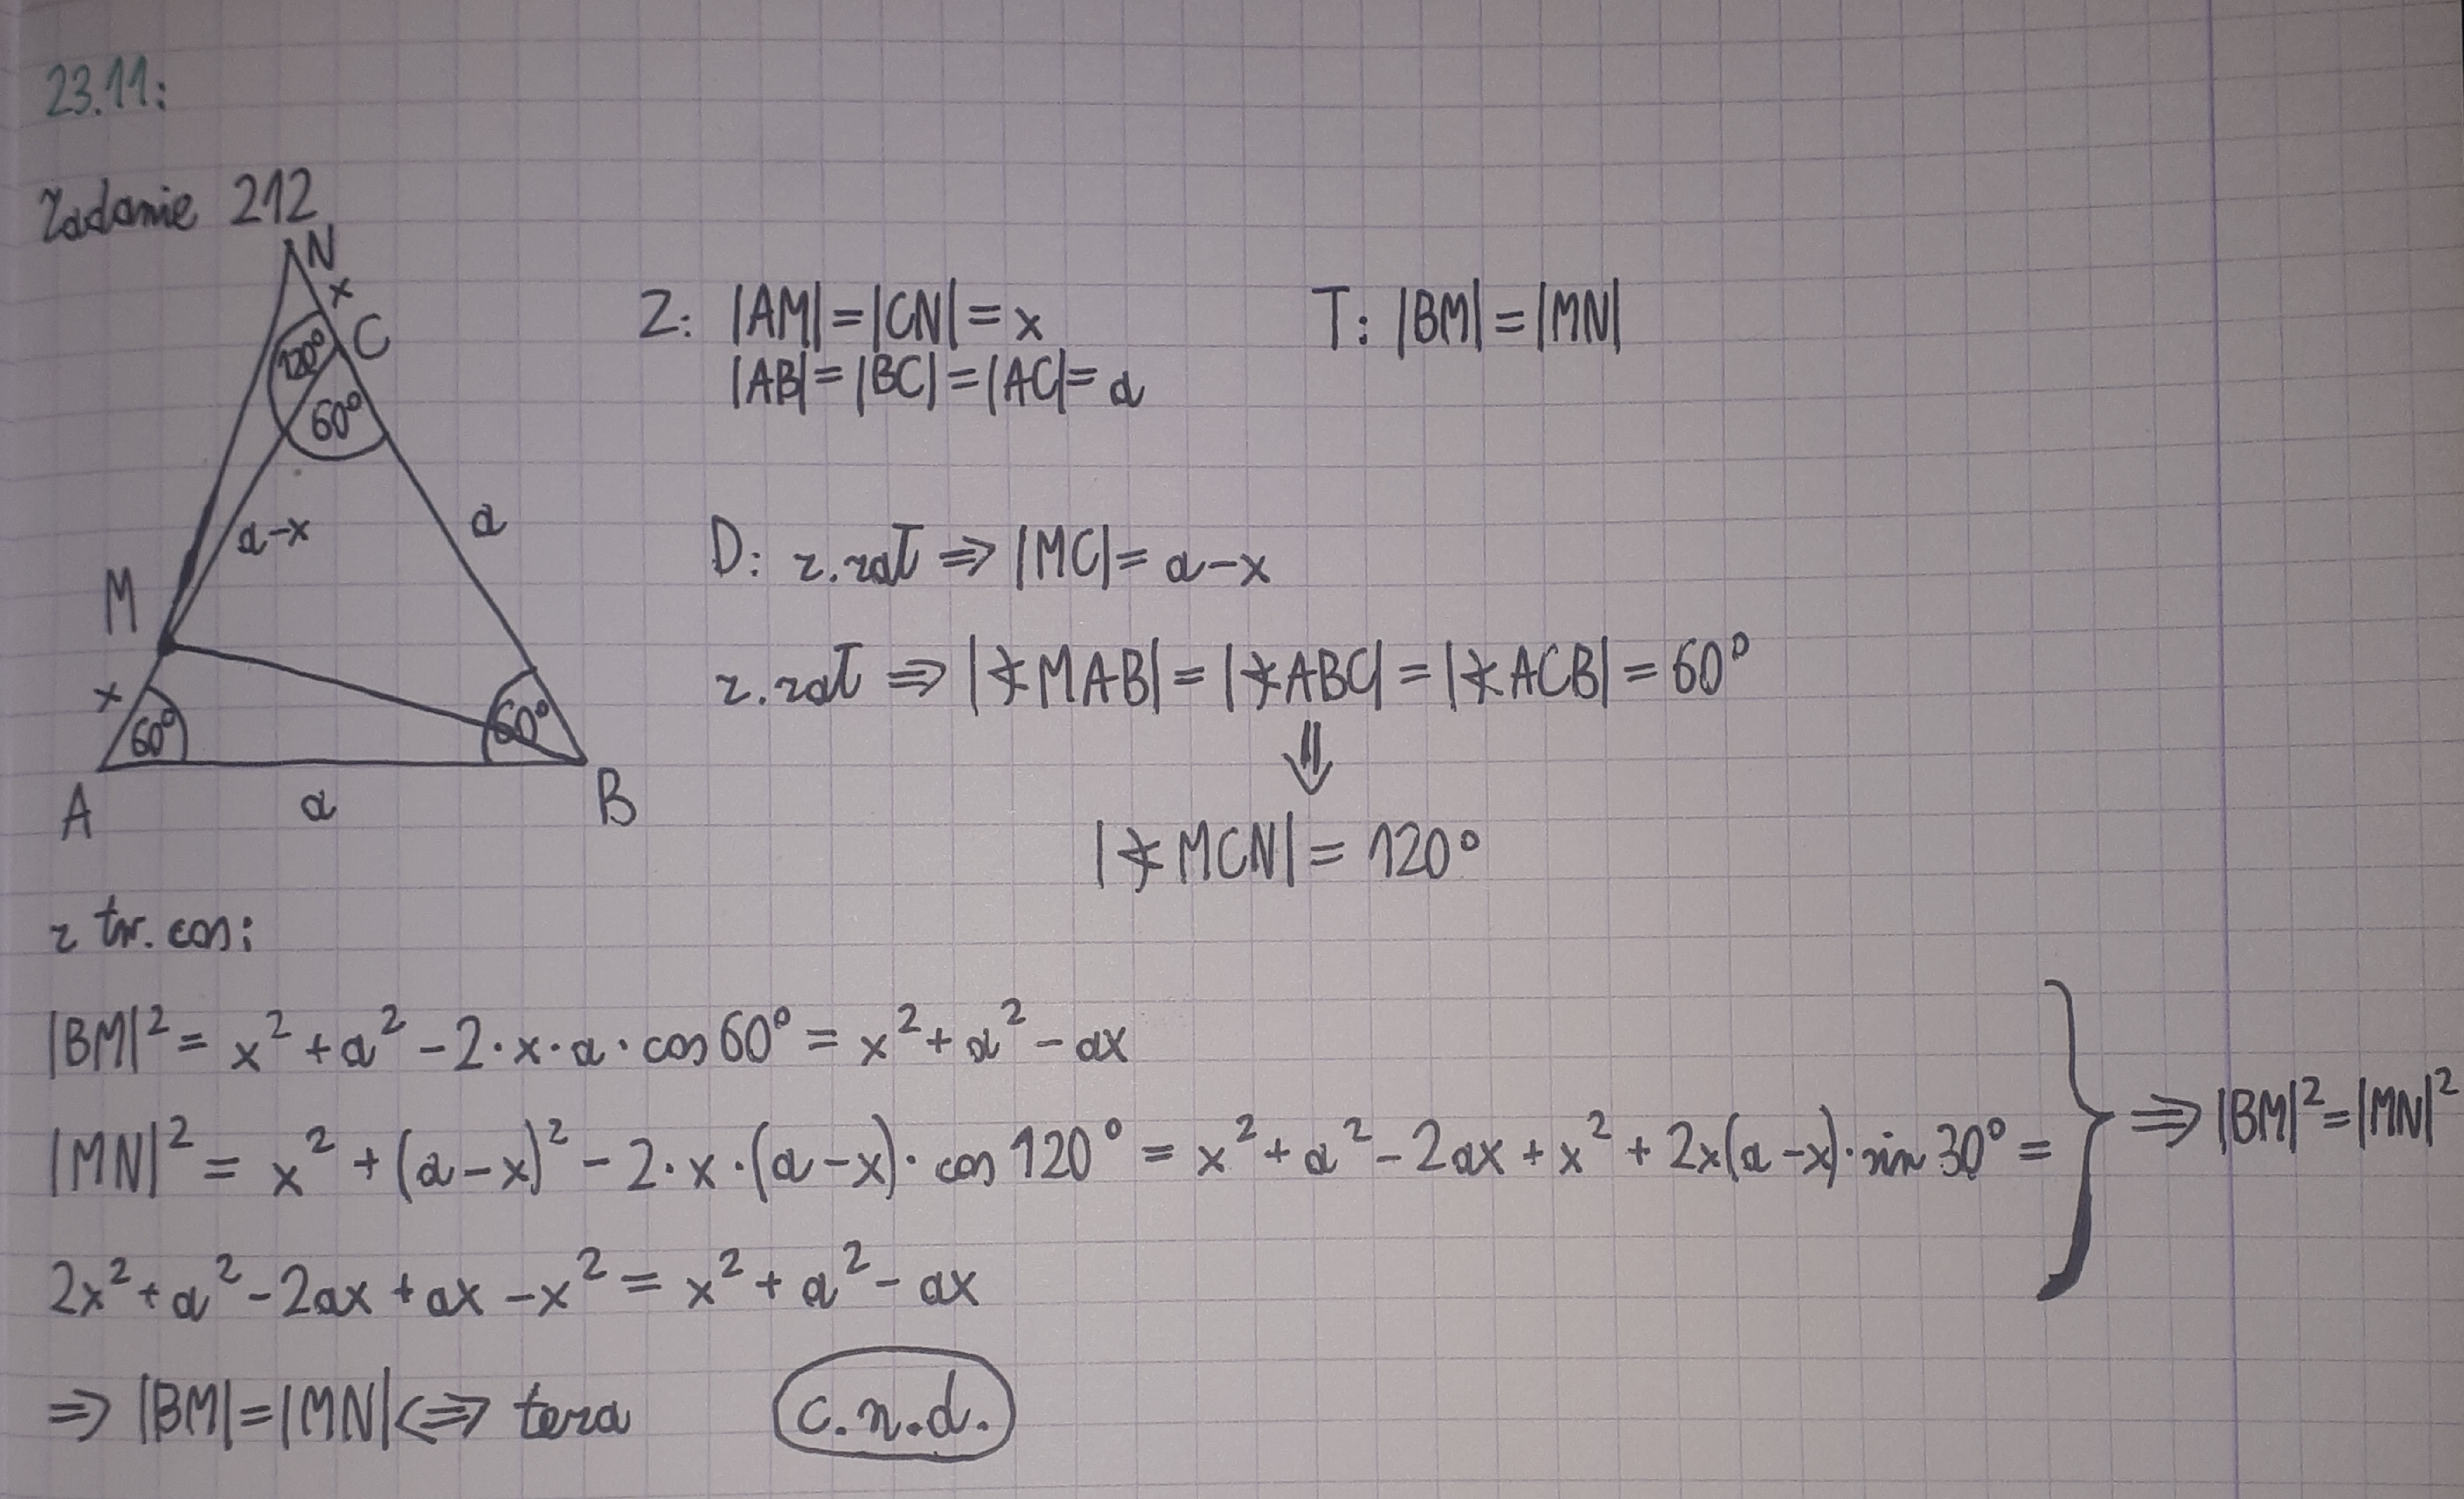 23.11:
Zadanie 212
N
x
C
120°
60°
a-x
a
M
x
60°
60°
A
a
B
Z: |AM|=|CN|=x
|AB|=|BC|=|AC|=a
T: |BM|=|MN|
D: z.zał ⇒ |MC|=a-x
z.zał ⇒ |∢MAB|=|∢ABC|=|∢ACB|=60°
⇓
|∢MCN|=120°
z tw. cos:
|BM|²=x²+a²-2·x·a·cos60°=x²+a²-ax
|MN|²=x²+(a-x)²-2·x·(a-x)·cos120°=x²+a²-2ax+x²+2x(a-x)·sin30°=
} ⇒ |BM|²=|MN|²
2x²+a²-2ax+ax-x²=x²+a²-ax
⇒ |BM|=|MN| ⇔ teza
c.n.d.